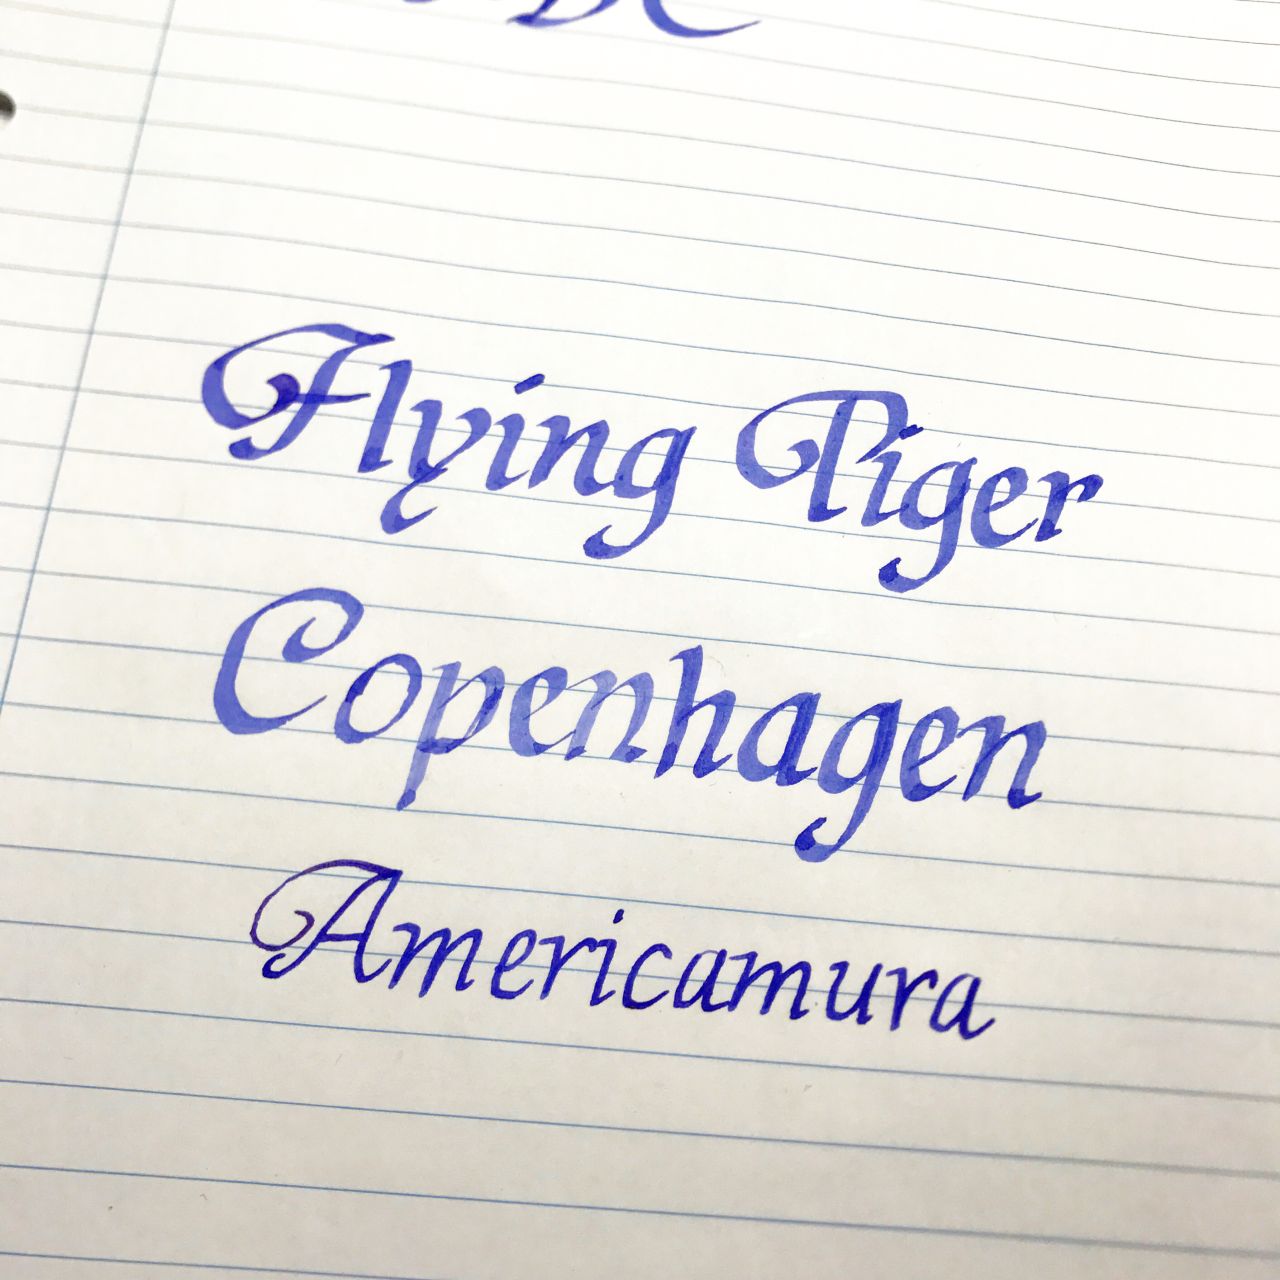 Flying Tiger
Copenhagen
Americamura